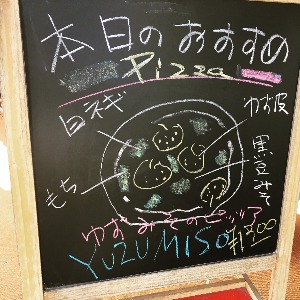 本日のおすすめ
Pizza
白ネギ
ゆず皮
もち
黒豆みそ
ゆずみそのピッツア
YUZUMISO ¥1200